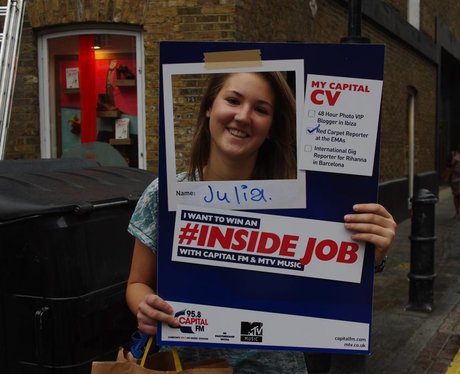 MY CAPITAL
CV
48 Hour Photo VIP
Blogger in Ibiza
Red Carpet Reporter
at the EMAs
International Gig
Reporter for Rihanna
in Barcelona
Name:
Julia.
I WANT TO WIN AN
#INSIDE JOB
WITH CAPITAL FM & MTV MUSIC
95.8
CAPITAL
FM
MTV
MUSIC
capitalfm.com
mtv.co.uk